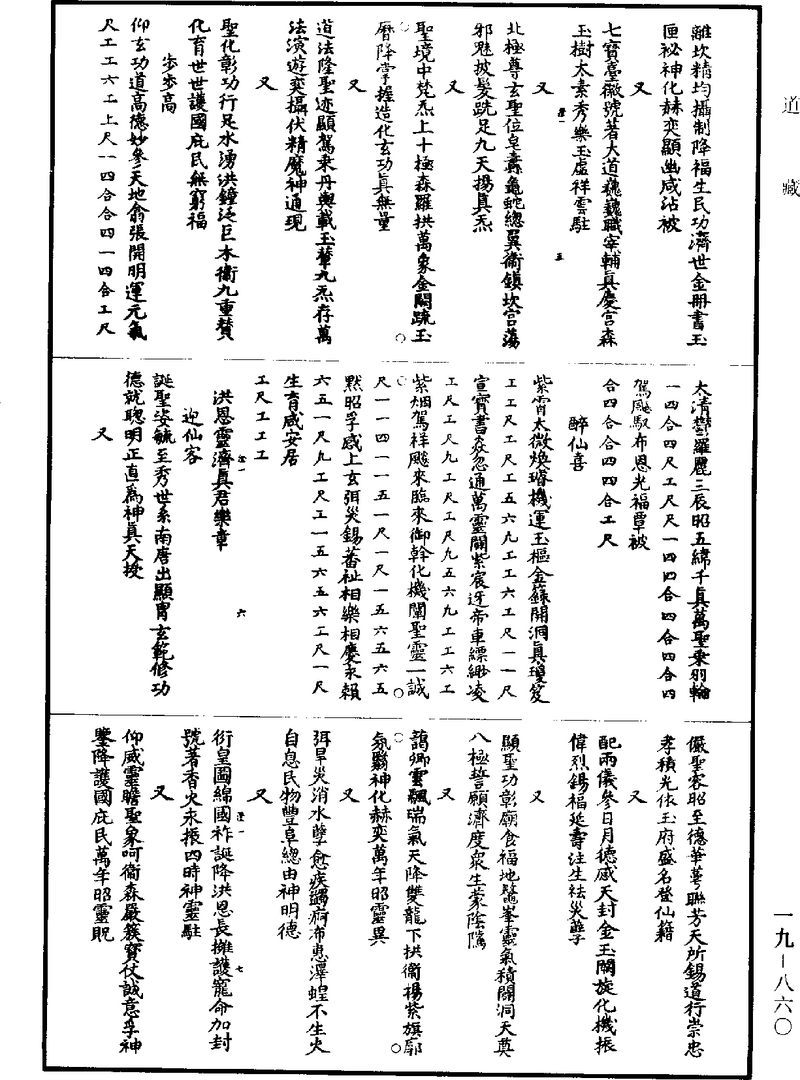 道藏
離坎精均攝制降福生民功濟世金冊書玉
匣祕神化赫奕顯幽咸沾被
又
七寶臺徽號著大道巍巍職宰輔真慶宮森
玉樹太素秀樂玉虛祥雲駐
又
北極尊玄聖位皂纛龜蛇總翼衛鎮坎宮蕩
邪魅披髮跣足九天揚真炁
又
聖境中梵炁上十極森羅拱萬象金闕疏玉
曆降掌握造化玄功真無量
又
道法隆聖迹顯駕乘丹輿載玉輦九炁存萬
法演遊奕攝伏精魔神通現
又
聖化彰功行足水湧洪鐘泛巨木衛九重贊
化育世世護國庇民無窮福
步步高
仰玄功道高德妙參天地翕張開明運元氣
尺工工六工上尺一四合合四一四合工尺
太清鬱羅麗三辰昭五緯千真萬聖乘羽輪
一四合四尺工尺尺一四四合四合四合四
駕飈馭布恩光福覃被
合四合合四四合工尺
醉仙喜
紫霄太微煥璿機運玉樞金籙開洞真瓊笈
工工尺工尺工尺工五六九工工六工尺一一尺
宣寶書焱忽通萬靈闢紫宸迓帝車縹緲凌
工尺工尺九工尺工尺九五六九工工六工
紫烟駕祥飈來臨來御斡化機闡聖靈一誠
尺一一四一一五一尺一尺一五六五六五
黙昭孚感上玄弭災錫蕃祉相樂相慶永賴
六五一尺九工尺工一五六五六工尺一尺
生育咸安居
工尺工工工
洪恩靈濟真君樂章
迎仙客
誕聖姿毓至秀世系南唐出顯冑玄範修功
德就聰明正直為神真天授
又
儼聖容昭至德華萼聯芳天所錫道行崇忠
孝積光依玉府盛名登仙籍
又
配兩儀參日月德感天封金玉闕旋化機振
偉烈錫福延壽注生祛災孽
又
顯聖功彰廟食福地鼇峯靈氣積闢洞天奠
八極誓願濟度眾生蒙陰隲
又
藹卿雲飄瑞氣天降雙龍下拱衛揚紫旗廓
氛翳神化赫奕萬年昭靈異
又
弭旱災消水孽愈疾蠲痾布惠澤蝗不生火
自息民物豐阜總由神明德
又
衍皇圖綿國祚誕降洪恩長擁護寵命加封
號著香火永振四時神靈駐
又
仰威靈瞻聖象呵衛森嚴簇寶仗誠意孚神
鑒降護國庇民萬年昭靈貺
一九－八六〇